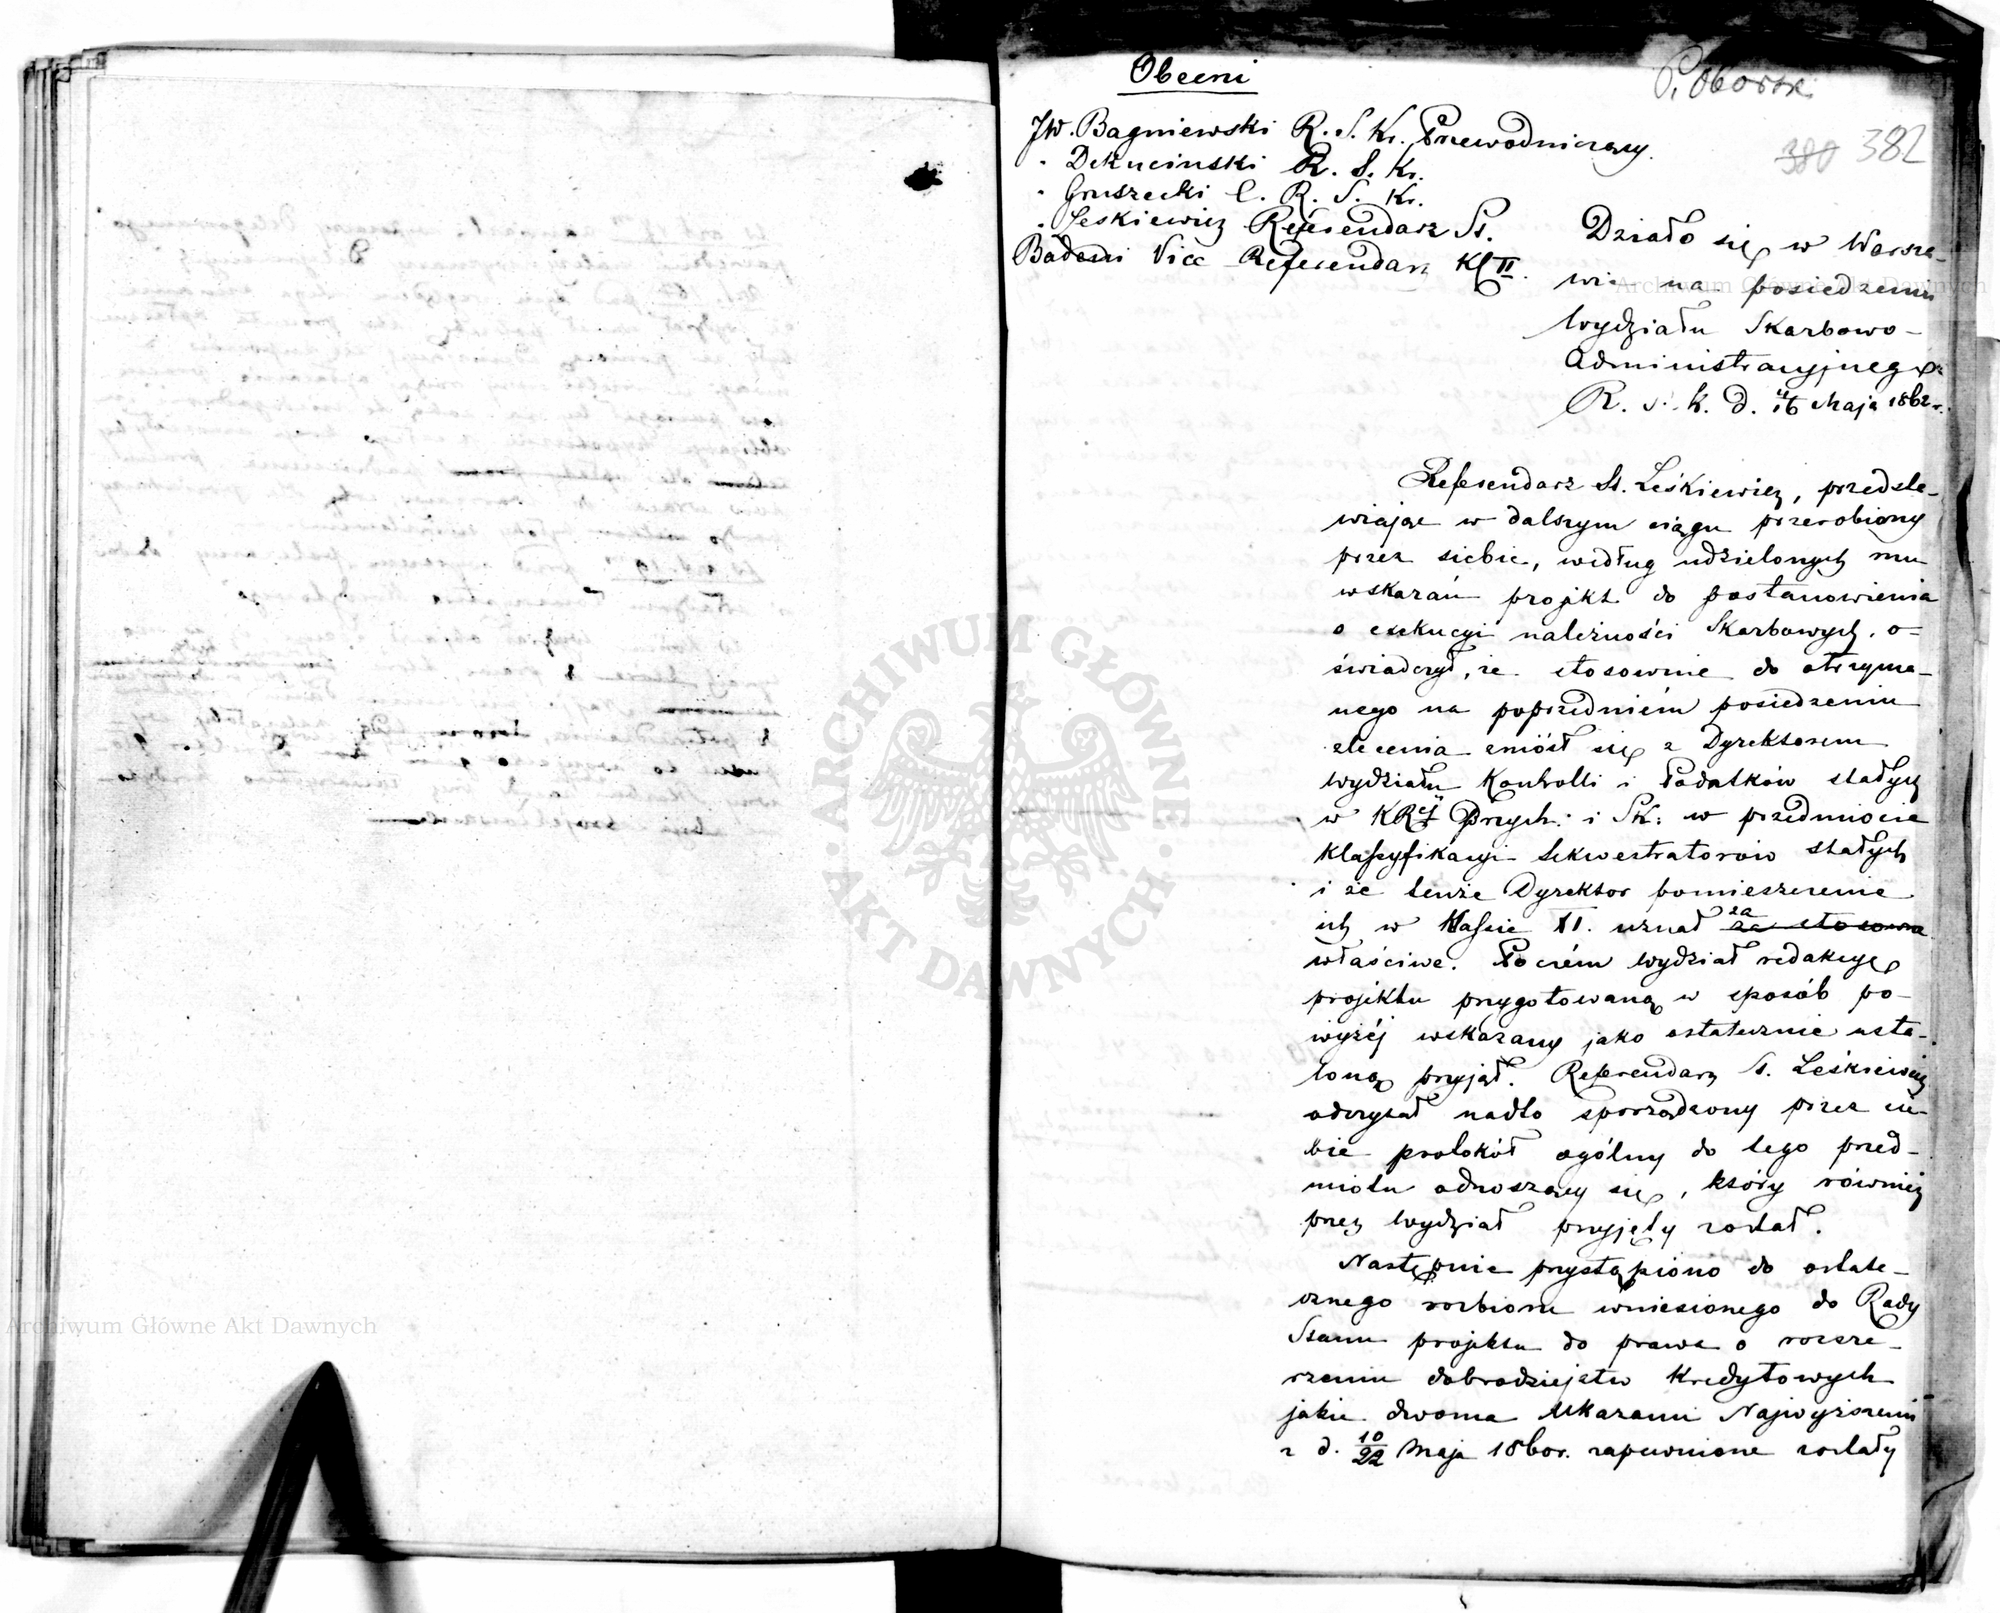 Obecni
P. Oborsk
380 382
JW. Bagniewski R. S. Kr. Przewodniczący.
" Dekuciński R. S. Kr.
" Gruszecki C. R. S. Kr.
" Leskiewicz Referendarz St.
Badeni Vice Referendarz Kl II.
Działo się w Warsza-
wie na posiedzeniu
Wydziału Skarbowo-
Administracyjnego
R. S. K. d. 4/16 Maja 1862 r.
Referendarz St. Leśkiewicz, przedsta-
wiając w dalszym ciągu przerobiony
przez siebie, według udzielonych mu
wskazań projekt do postanowienia
o exekucyi należności Skarbowych, o-
świadczył, że stosownie do otrzyma-
nego na poprzedniém posiedzeniu
zlecenia zniósł się z Dyrektorem
Wydziału Kontrolli i Podatków stałych
w KRej Przych: i Sk: w przedmiocie
klassyfikacyi Sekwestratorów stałych
i że tenże Dyrektor pomieszczenie
ich w Klassie XI. uznał za za stosowne
właściwe. Poczém Wydział redakcyę
projektu przygotowaną w sposób po-
wyżéj wskazany jako ostatecznie usta-
loną przyjął. Referendarz St. Leśkiewicz
odczytał nadto sporządzony przez sie-
bie protokół ogólny do tego przed-
miotu odnoszący się, który również
przez Wydział przyjęty został.
Następnie przystąpiono do ostate-
cznego rozbioru wniesionego do Rady
Stanu projektu do prawa o rozsze-
rzeniu dobrodziejstw Kredytowych
jakie dwoma Ukazami Najwyższemi
z d. 10/22 Maja 1860 r. zapewnione zostały
Archiwum Główne Akt Dawnych
Archiwum Główne Akt Dawnych
· ARCHIWUM GŁÓWNE · AKT DAWNYCH